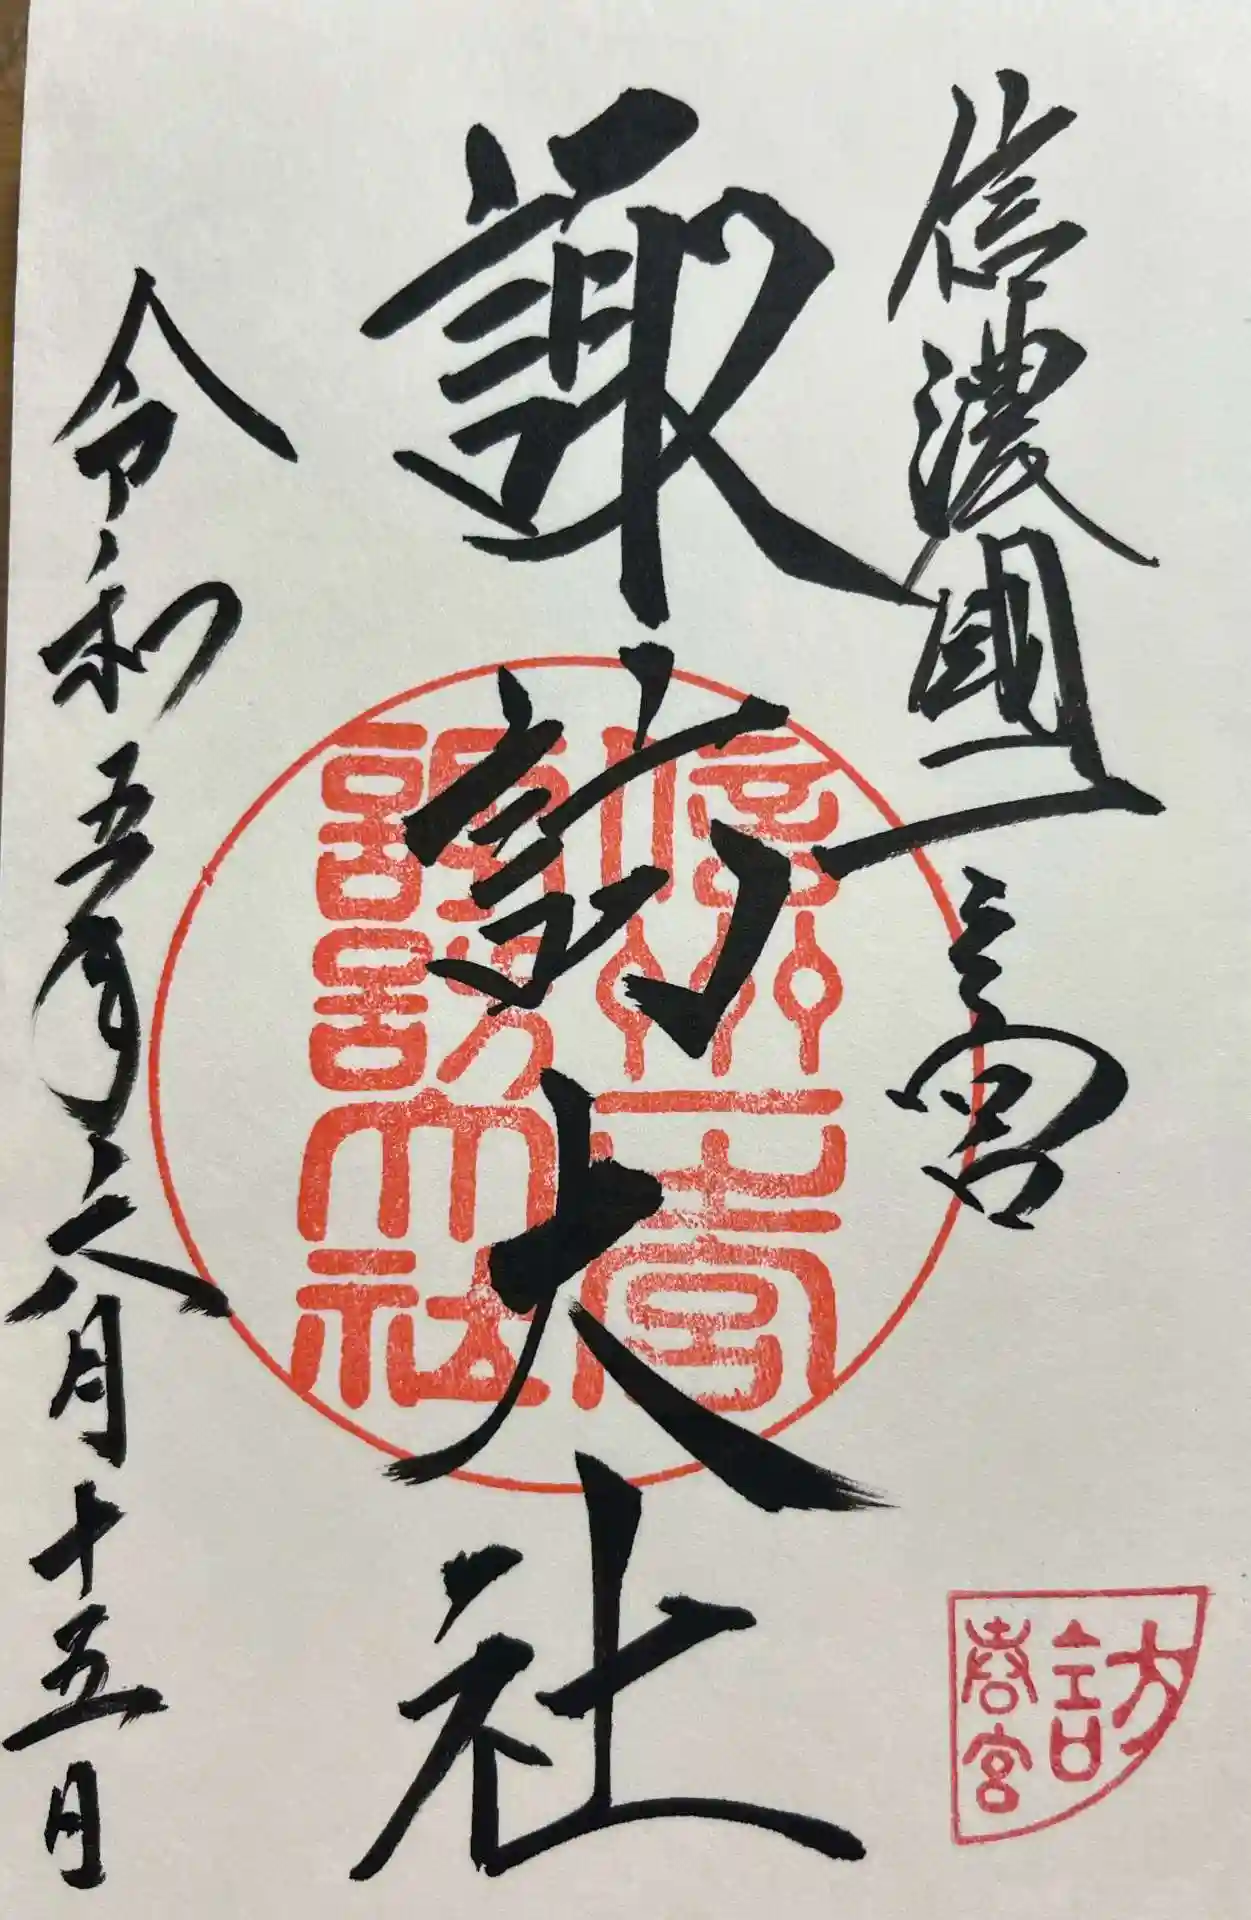 信濃國一之宮
諏訪大社
令和五年六月十五日
信州一之宮
諏訪大社
訪
春宮